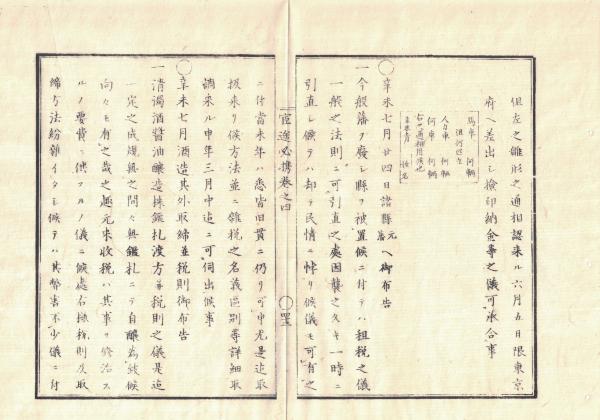 但左之雛形之通相認来ル六月五日限東京
府ヘ差出シ検印納金等之儀可承合事
馬車 何輌
但何疋立
人力車 何輌
何車 何輌
右之通相用候也
年号月 姓名
辛未七月廿四日諸縣元藩ヘ御布告
一今般藩ヲ廃シ縣ヲ被置候ニ付テハ租税之儀
一般之法則ニ可引直之處因襲之久キ一時ニ
引直シ候テハ却テ民情ニ悖リ候儀モ可有之
官途必携巻之四
四五
ニ付當未年ハ悉皆旧貫ニ仍リ可申尤是迄取
扱来リ候方法並ニ雑税之名義區別等詳細取
調来ル申年三月中迄ニ可伺出候事
辛未七月酒造其外取締並税則御布告
一清濁酒醤油醸造株鑑札渡方并税則之儀是迄
一定之成規無之間々無鑑札ニテ自醸為致候
向々モ有之哉之趣元来收税ハ其事ヲ修治ス
ルノ要費ニ供スルノ儀ニ候處右株税則区取
締方法紛雑イタシ候テハ其弊害不少儀ニ付